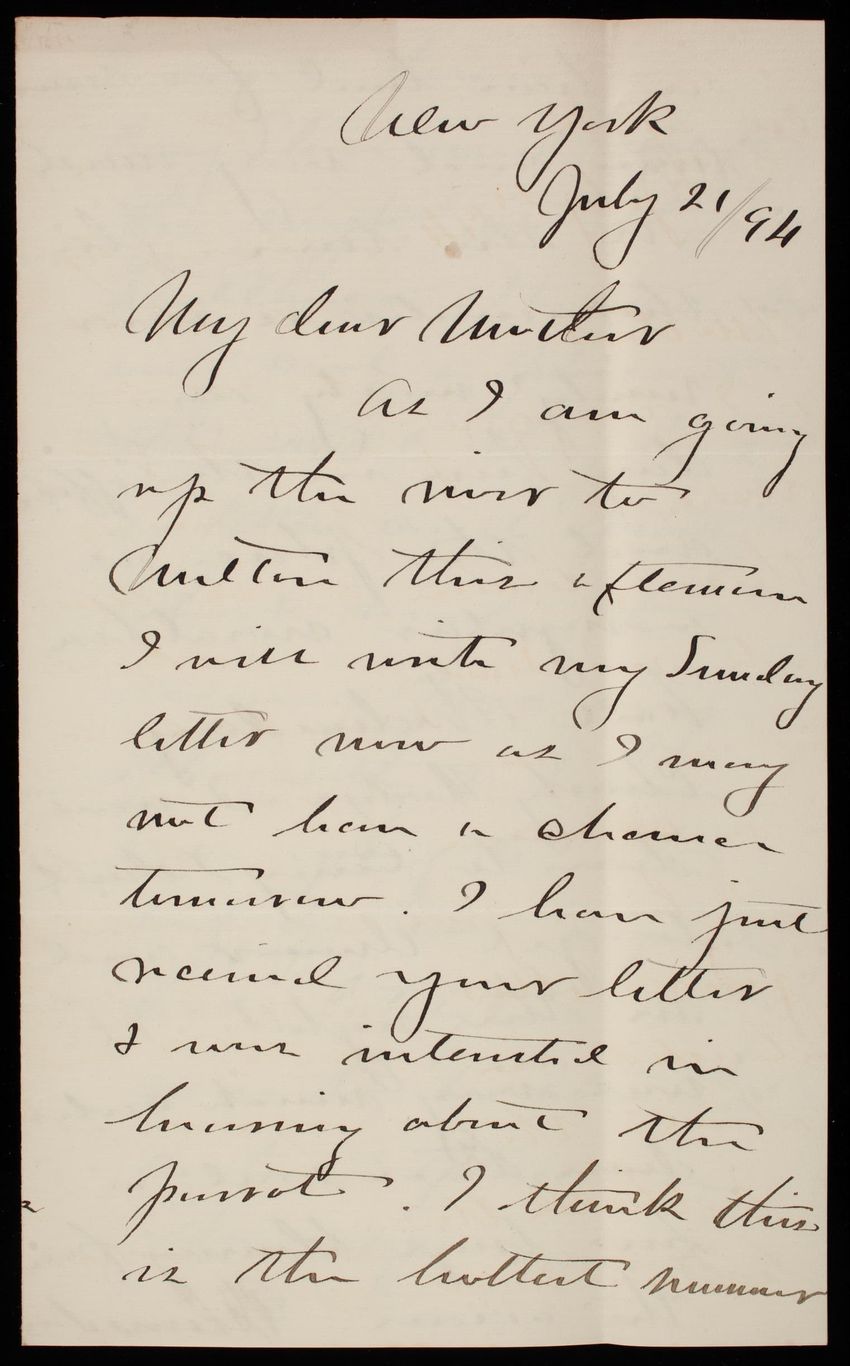 New York
July 21/94
My dear Mother
As I am going
up the river to
Milton this afternoon
I will write my Sunday
letter now as I may
not have a chance
tomorrow. I have just
received your letter
I was interested in
hearing about the
parrot. I think this
is the hottest summer